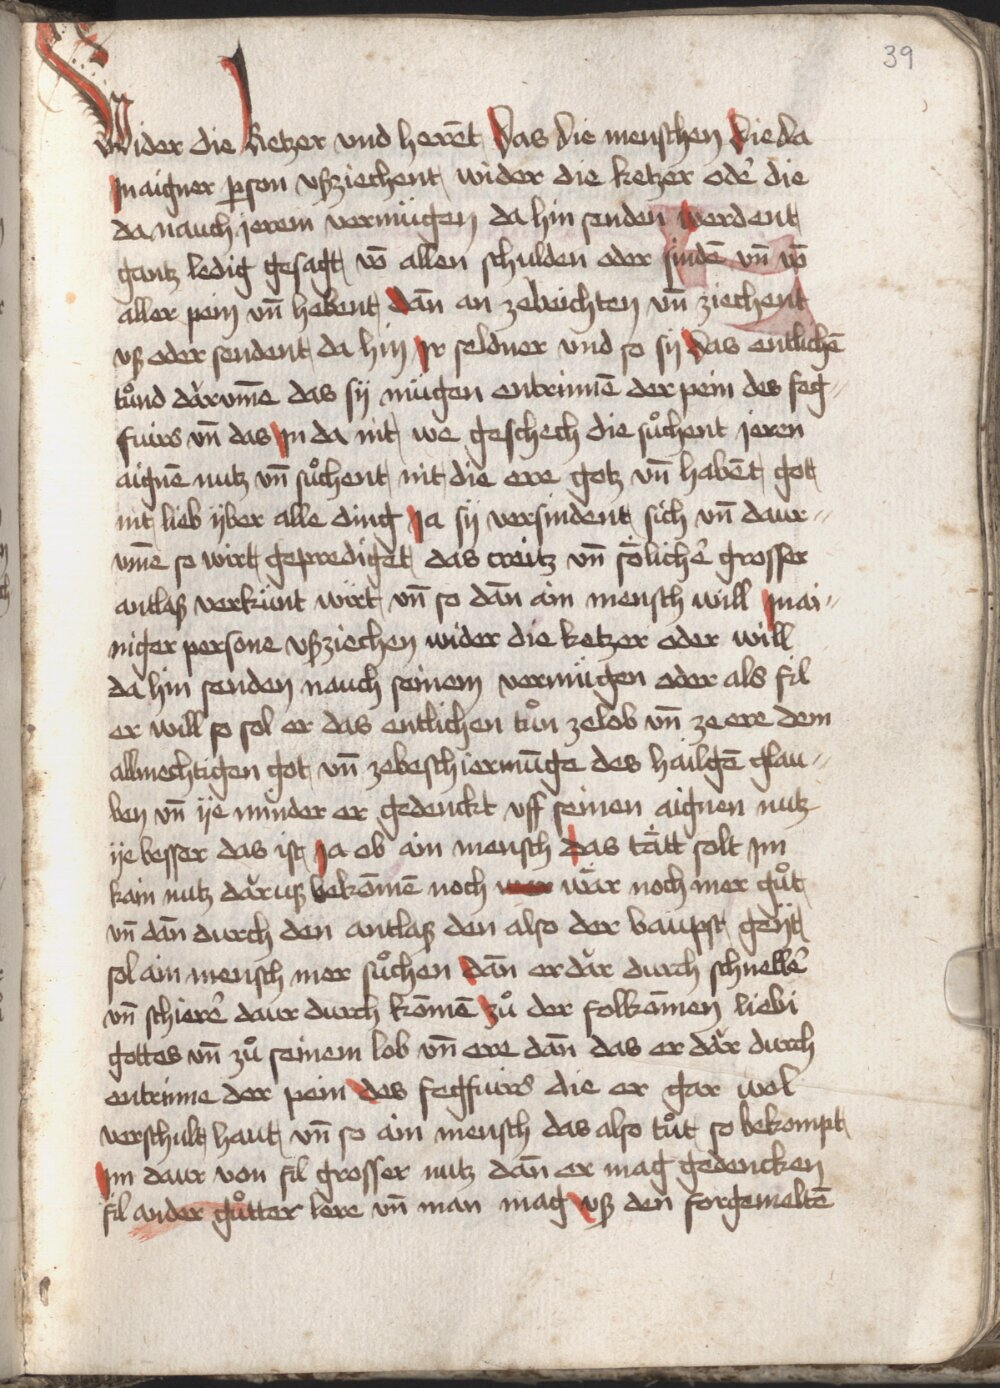 39
Wider die Ketzer vnd herent Das die menschen die da
In aigner pson vßziechent wider die ketzer ode die
da nauch jerem vermügen da hin senden werdent
gantz ledig gesagt vō allen schulden oder sindē vn̄ vō
aller pein vn̄ hebent dān an zebeichten vn̄ ziechent
vß oder sendent da hin Ir seldner vnd so sÿ das entlichē
tůnd darvm̄e das sÿ mügen entrinnē der pein des feg〃
fuirs vn̄ das In da nit we geschech die sůchent jeren
aignē nutz vn̄ sůchent nit die ere gotz vn̄ habēt got
nit lieb ÿber alle ding Ja sÿ versindent sich vn̄ daur〃
vm̄e so wirt geprediget das creitz vn̄ sölichē grosser
antlaß verkünt wirt vn̄ so dān ain mensch will In ai〃
niger persone vßziechen wider die ketzer oder will
da hin senden nauch seinem vermügen oder als fil
er will so sol er das entlichen tůn zelob vn̄ ze ere dem
allmechtigen got vn̄ zebeschiermūge des hailgē glau〃
ben vn̄ ÿe minder er gedenckt vff seinen aignen nutz
ÿe besser das ist Ja ob ain mensch das tätt solt Im
kain nutz daruß bekōmē noch wär noch mer gůt
vn̄ dān durch den antlaß den also der baupst geÿt
sol ain mensch mer sůchen dān er dar durch schnellē
vn̄ schierē daur durch kōmē zů der folkōmen liebi
gottes vn̄ zů seinem lob vn̄ ere dān das er dar durch
entrinne der pein des fegfuirs die er gar wol
verschult haut vn̄ so ain mensch das also tůt so bekompt
Im daur von fil grosser nutz dān er mag gedencken
fil ander gůtter lere vn̄ man mag vß den forgemeltē